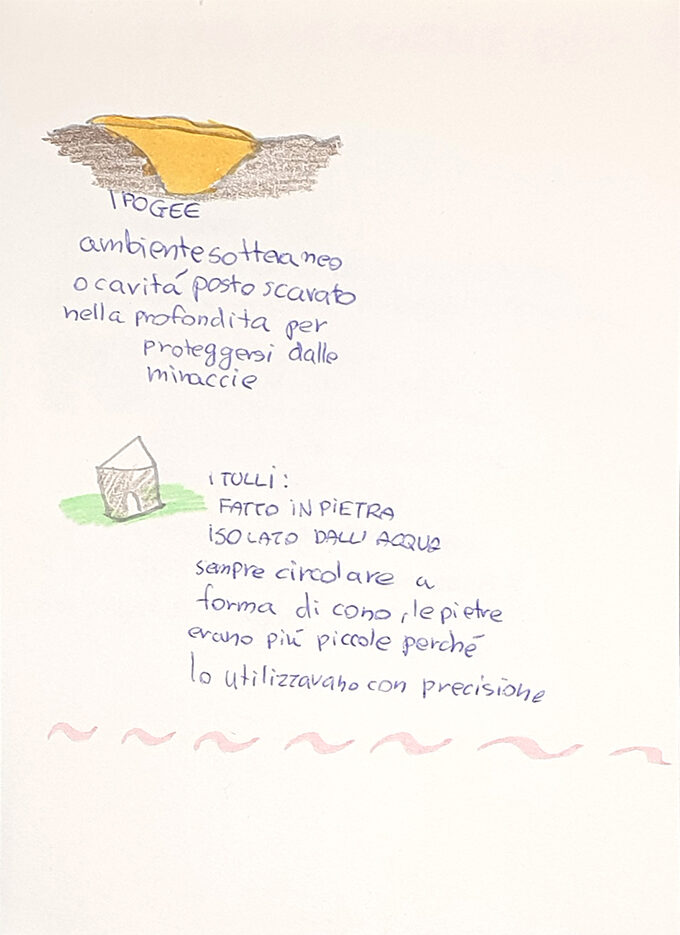 IPOGEE
ambiente sotteraneo
o cavitá posto scavato
nella profondita per
proteggersi dalle
minaccie
i TULLi:
FATTO iN PiETRA
iSOLATO DALL' ACQUA
sempre circolare a
forma di cono, le pietre
erano piú piccole perché
lo utilizzavano con precisione